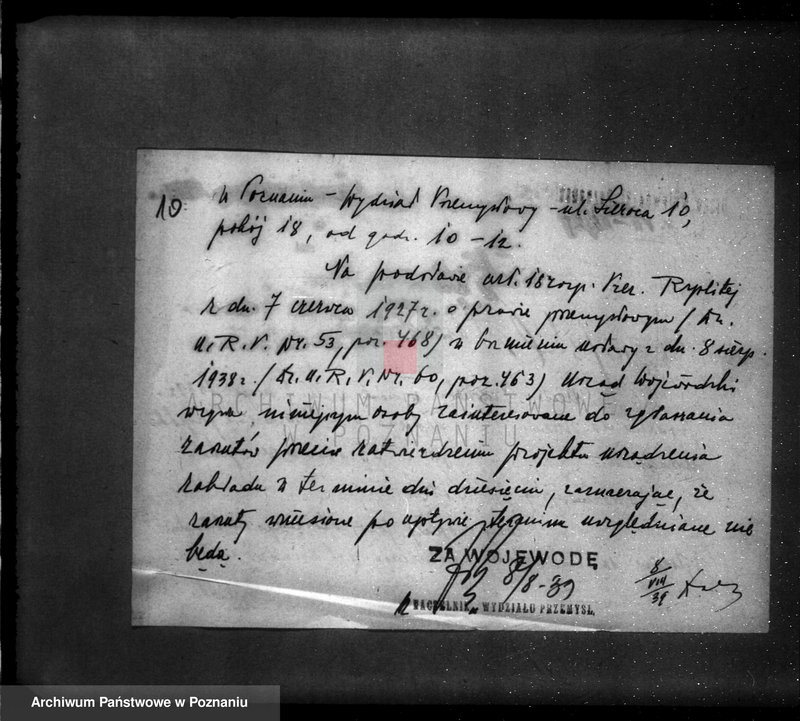 10
w Poznaniu – Wydział Przemysłowy – ul. Sieroca 10,
pokój 18, od godz. 10 – 12.
Na podstawie art. 18 rozp. Prez. Rzplitej
z dn. 7 czerwca 1927 r. o prawie przemysłowym / Dz.
U. R. P. Nr. 53, poz. 468) w brzmieniu ustawy z dn. 8 sierp.
1938 r. / Dz. U. R. P. Nr. 60, poz. 463) Urząd Wojewódzki
wzywa niniejszym osoby zainteresowane do zgłaszania
zarzutów przeciw zatwierdzeniu projektu urządzenia
zakładu w terminie dni dziesięciu, zaznaczając, że
zarzuty wniesione po upływie terminu uwzględniane nie
będą.
ZA WOJEWODĘ
8/8-39
8/VIII 39
NACZELNIK WYDZIAŁU PRZEMYSŁ.
ARCHIWUM PAŃSTWOWE
W POZNANIU
Archiwum Państwowe w Poznaniu